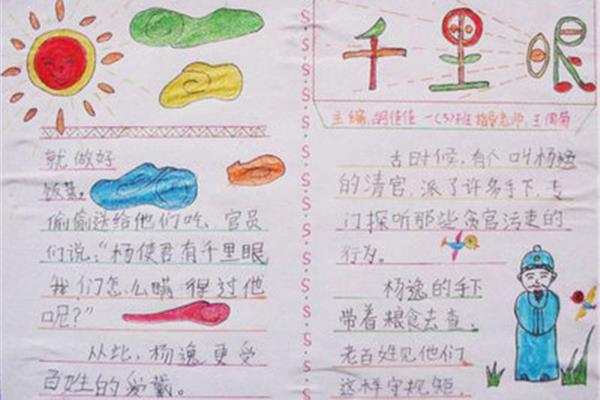 千里眼
主编:胡佳佳 一(3)班 指导老师:王
古时候,有个叫杨逸
的清官,派了许多手下,专
门探听那些贪官污吏的
行为。
杨逸的手下
带着粮食去查,
老百姓见他们
这样守规矩,
就做好
饭菜,
偷偷送给他们吃,官员
们说:“杨使君有千里眼
我们怎么瞒得过他
呢?”
从此,杨逸更受
百姓的爱戴。